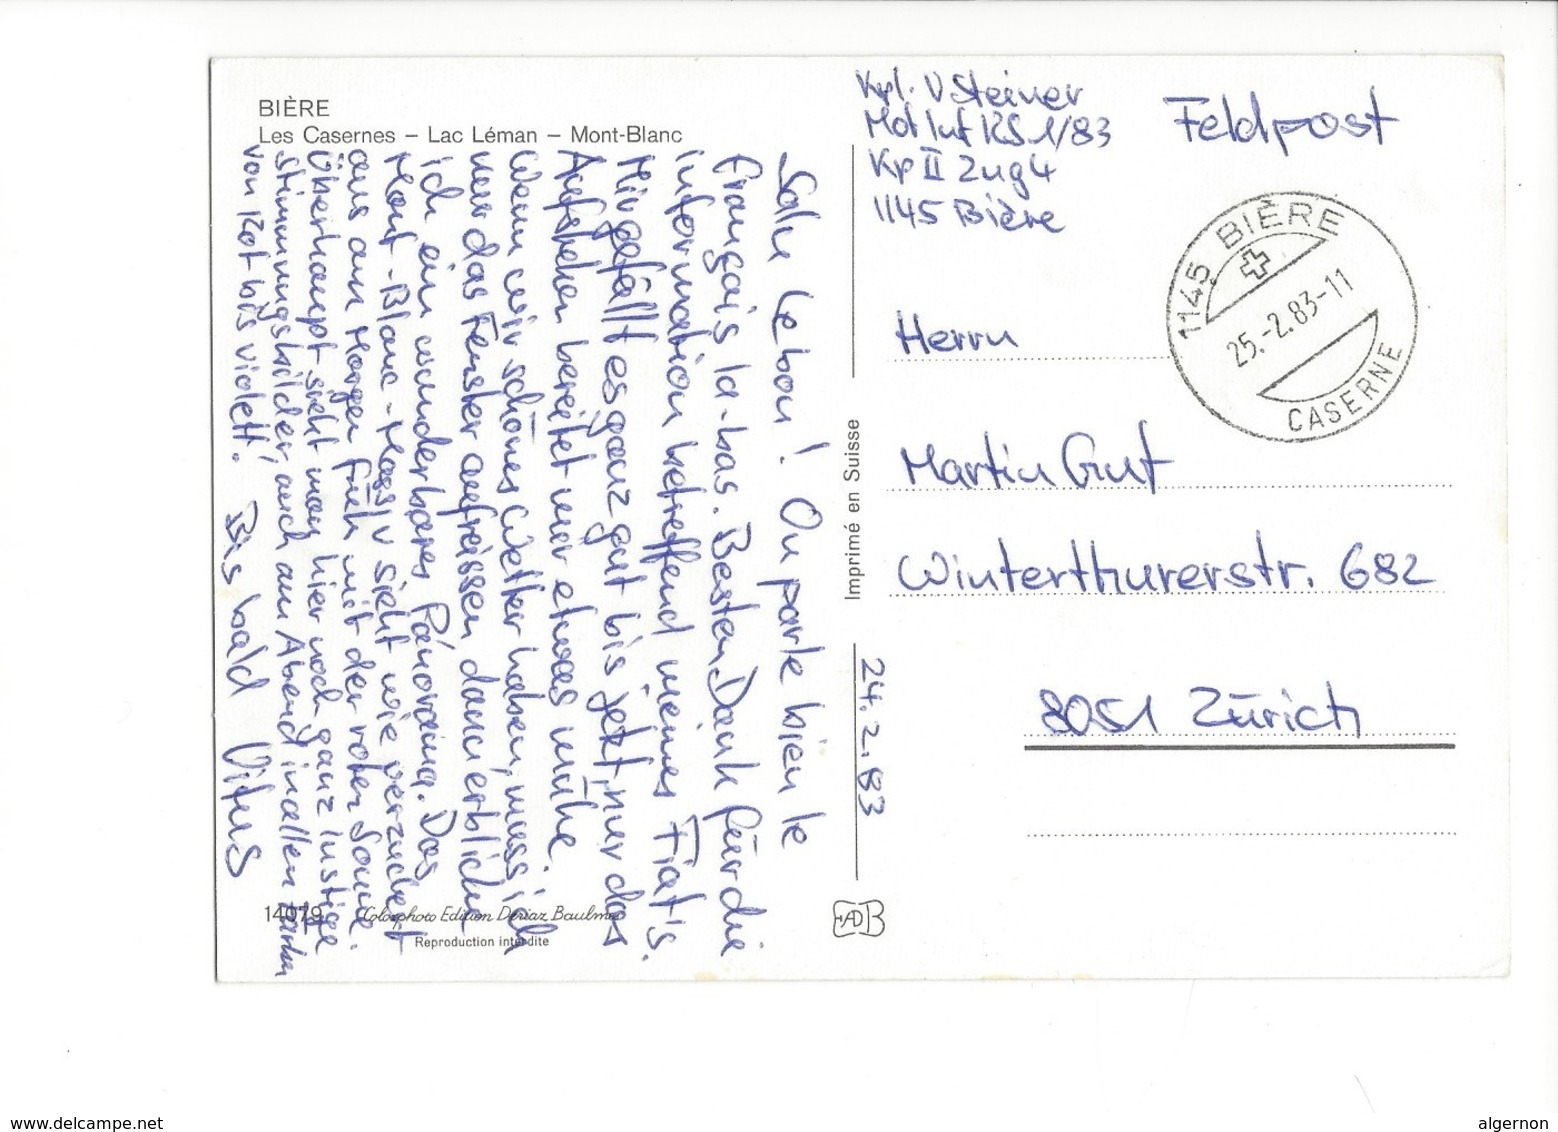 BIÈRE
Les Casernes – Lac Léman – Mont-Blanc
Salu le bon! On parle bien le
français la-bas. Besten Dank für die
information betreffend meines Fiat's.
Mir gefällt es ganz gut bis jetzt, nur das
Aufstehen bereitet mir etwas mühe.
Wenn wir schönes Wetter haben, muss ich
nur das Fenster aufreissen, dann erblicke
ich ein wunderbares Panorama. Das
Mont-Blanc-Massiv sieht wie verzuckert
aus am Morgen früh mit der roten Sonne.
Überhaupt sieht man hier noch ganz lustige
Stimmungsbilder, auch am Abend in allen Farben
von Rot bis violett. Bis bald Vitus
14079 Colorphoto Edition Dériaz Baulmes
Reproduction interdite
Imprimé en Suisse
24.2.83
EADB
Kpl. V Steiner
Mot Inf RS 1/83
Kp II Zug 4
1145 Bière
Feldpost
1145 BIÈRE
25.-2.83-11
CASERNE
Herrn
Martin Gut
Winterthurerstr. 682
8051 Zürich
www.delcampe.net
algernon